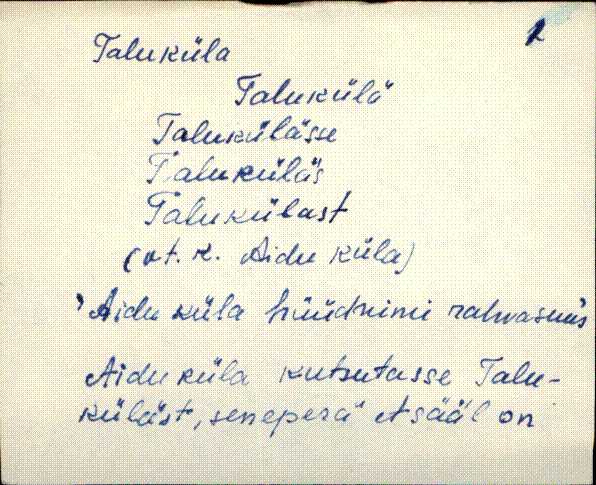 1
Taluküla
Talukülä
Talukülässe
Taluküläs
Talukülast
(vt. k. Aidu küla)
'Aidu küla hüüdnimi rahvasuus
Aidu küla kutsutasse Talu-
küläst, seneperä et sääl on